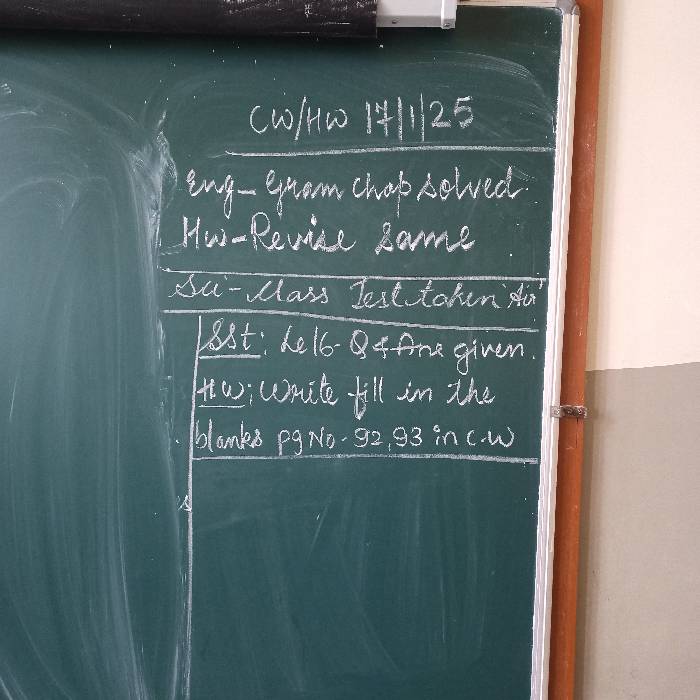 CW/HW 17/1/25
Eng- Gram chap solved.
HW-Revise same
Sci- Mass Test taken 'Air'
SSt: Le 16- Q & Ans given.
HW: Write fill in the
blanks pg No- 92,93 in C.W
s